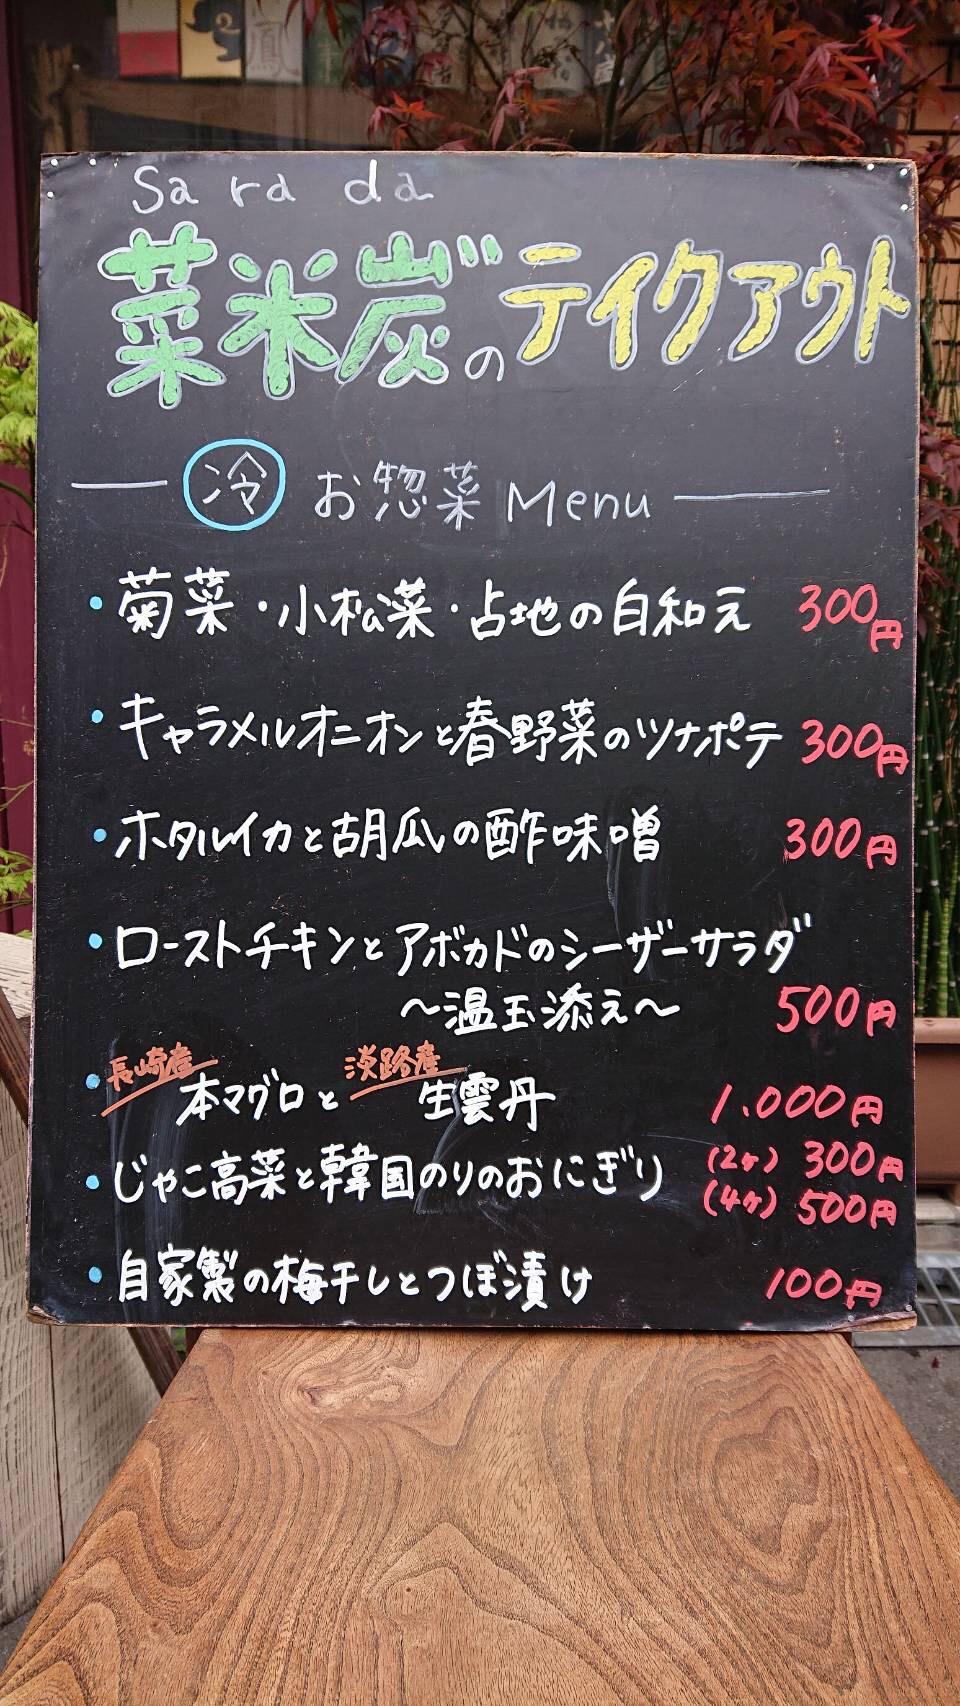 Sa ra da
菜米炭゛のテイクアウト
冷 お惣菜 Menu
・菊菜・小松菜・占地の白和え 300円
・キャラメルオニオンと春野菜のツナポテ 300円
・ホタルイカと胡瓜の酢味噌 300円
・ローストチキンとアボカドのシーザーサラダ
〜温玉添え〜 500円
・長崎産 本マグロと 淡路産 生雲丹 1.000円
・じゃこ高菜と韓国のりのおにぎり (2ヶ) 300円
(4ヶ) 500円
・自家製の梅干しとつぼ漬け 100円